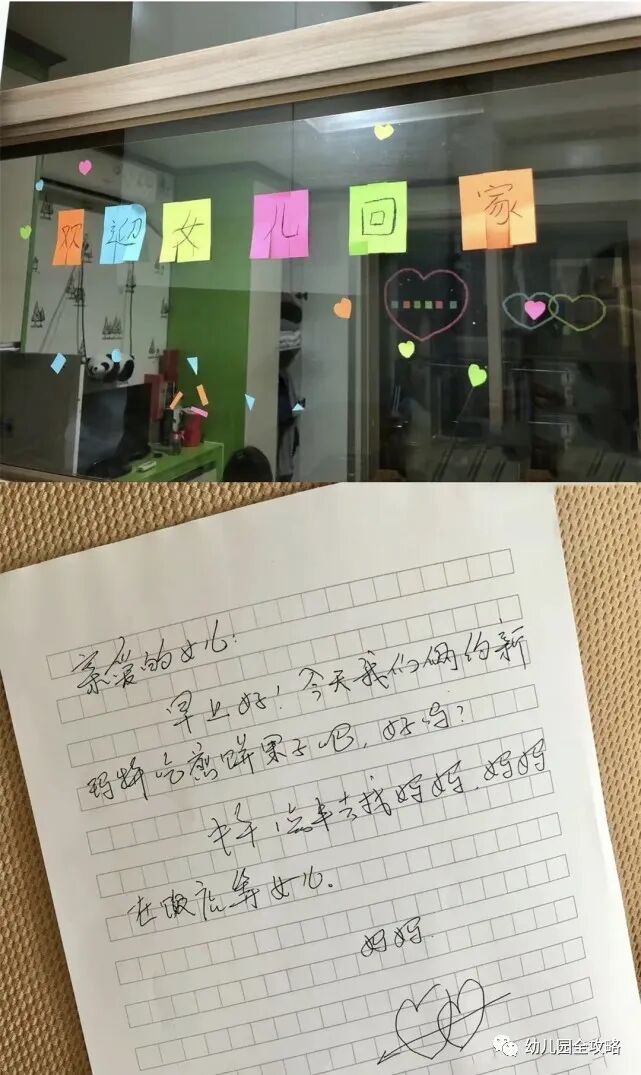 欢迎女儿回家
亲爱的女儿:
早上好!今天我们俩约新
玛特吃煎饼果子吧,好吗?
中午 点半去找妈妈,妈妈
在饭店等女儿.
妈妈.
幼儿园全攻略